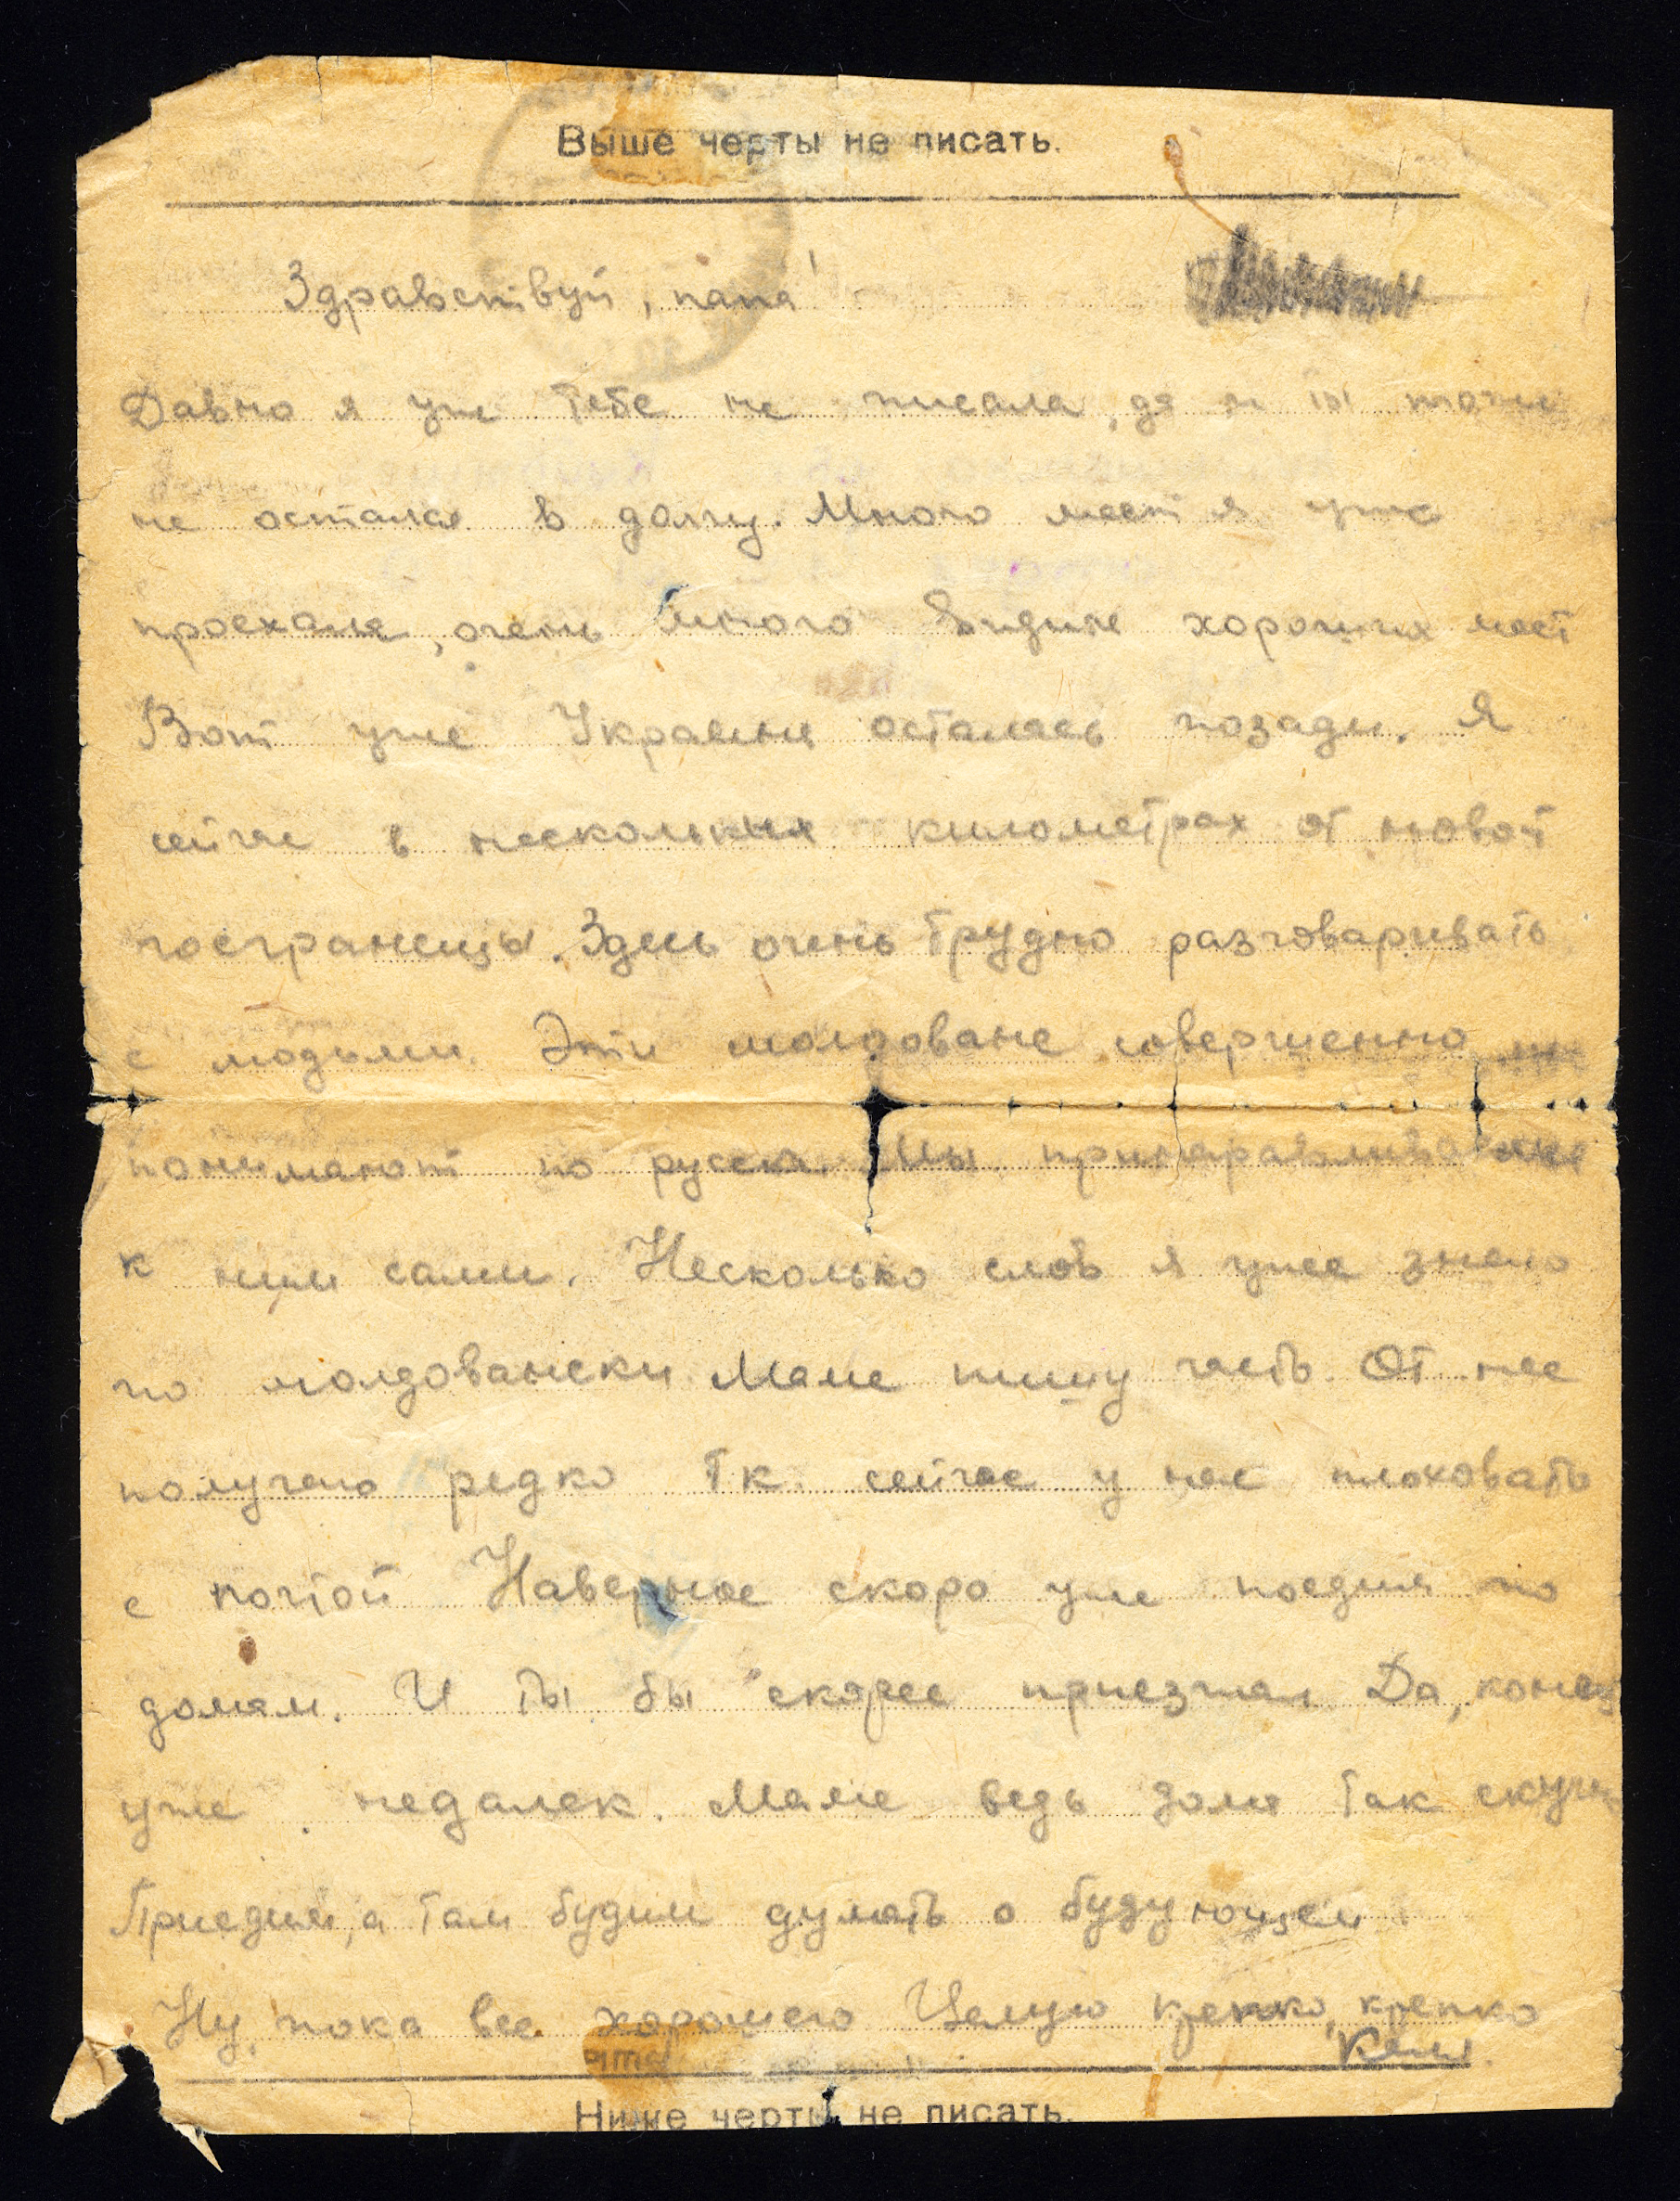 Выше черты не писать.
Здравствуй, папа!
Давно я уже тебе не писала, да и ты тоже
не остался в долгу. Много мест я уже
проехала, очень много видила хороших мест
Вот уже Украина осталась позади. Я
сейчас в нескольких километрах от новой
госграницы. Здесь очень трудно разговаривать
с людьми. Эти молдоване совершенно не
понимают по русски. Мы
к ним сами. Несколько слов я уже знаю
по молдовански. Маме пишу часто. От нее
получаю редко т.к. сейчас у нас плоховато
с почтой Наверное скоро уже поедим по
домам. И ты бы скорее приезжал. Да, конец
уже недалек. Маме ведь дома так
Приедим, а там будим думать о будующем.
Ну, пока все хорошего Целую крепко, крепко
Ниже черты не писать.